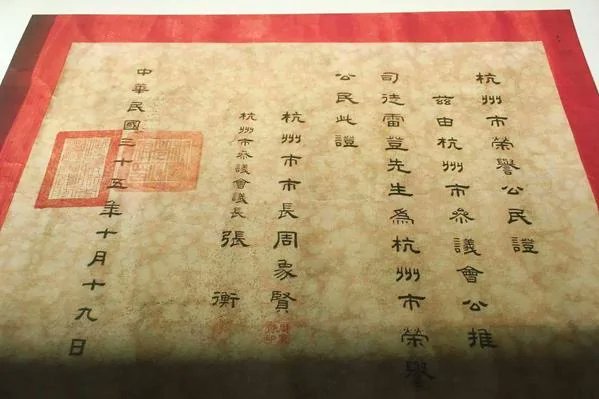 杭州市荣譽公民證
茲由杭州市參議會公推
司徒雷登先生為杭州市荣譽
公民此證
杭州市市長周象賢
杭州市參議會議長張衡
中華民國三十五年十月十九日